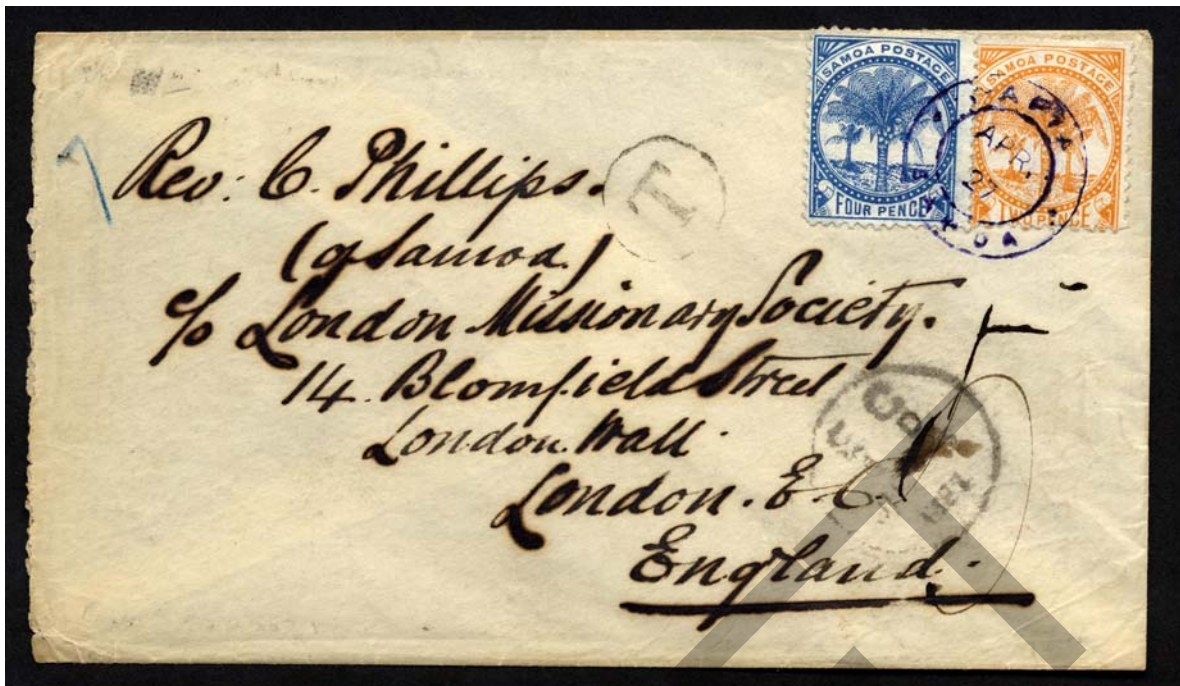 SAMOA POSTAGE
FOUR PENCE
SAMOA POSTAGE
TWO PENCE
APIA
APR.
27
SAMOA
T
Rev: C. Phillips.
(of Samoa)
c/o London Missionary Society.
14. Blomfield Street
London Wall.
London. E.C.
England.